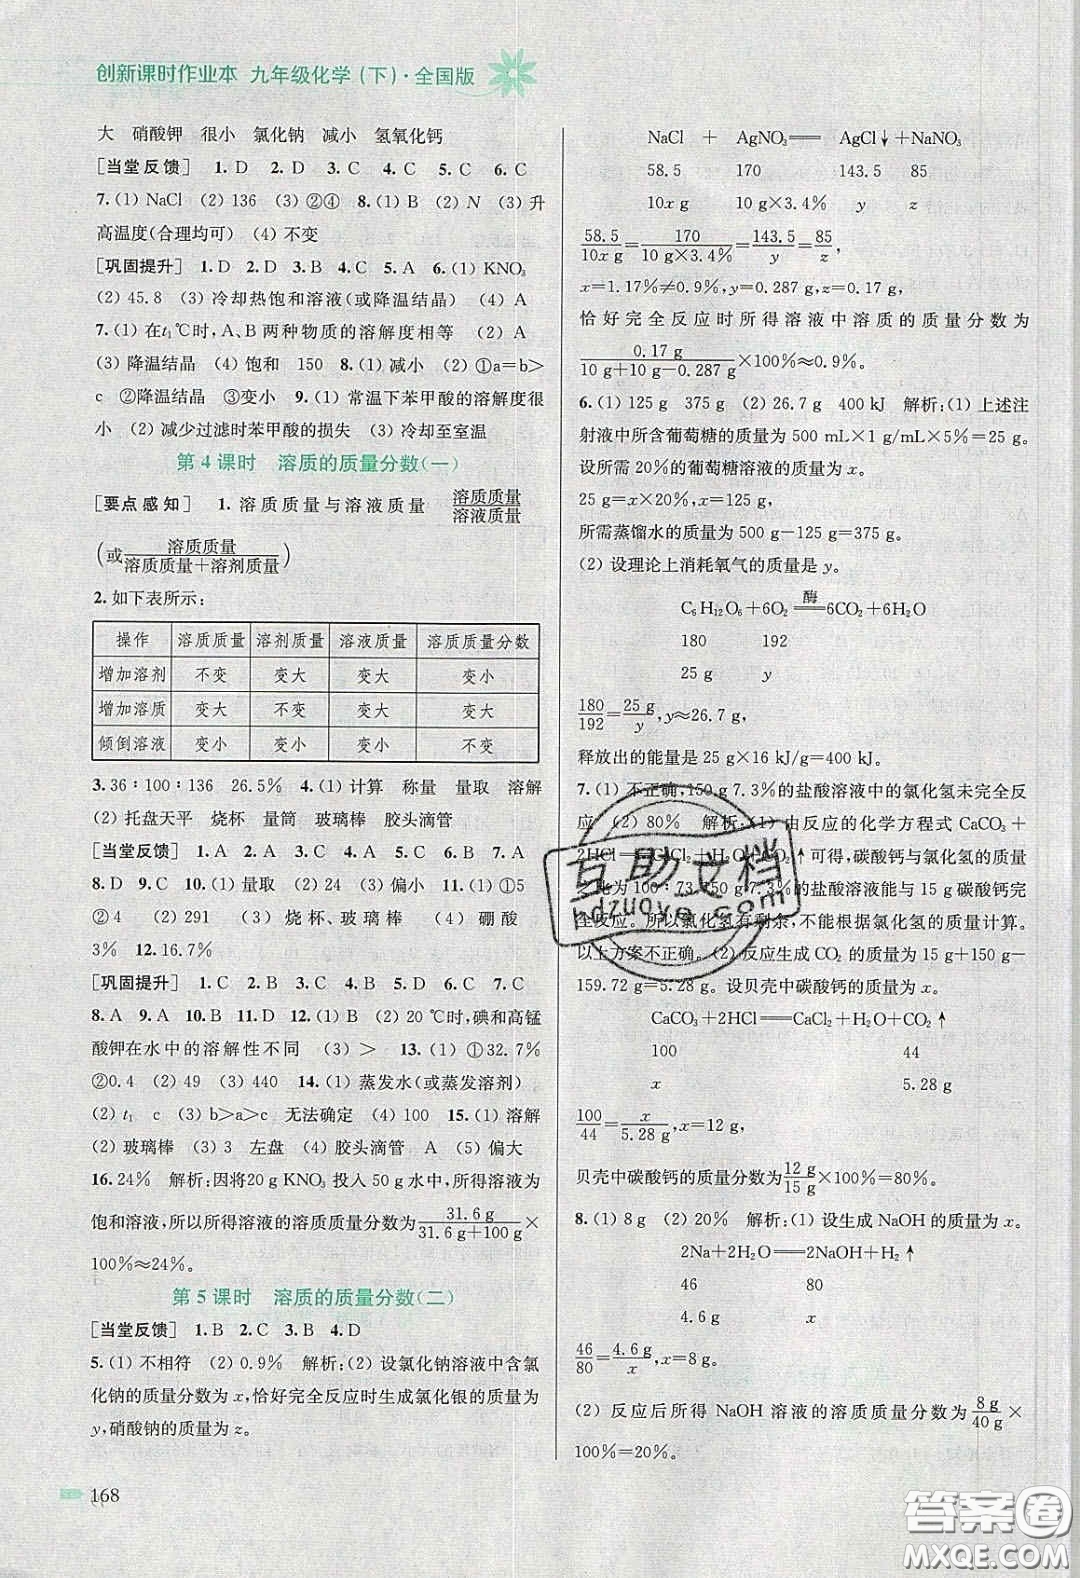 创新课时作业本 九年级化学(下)·全国版
大 硝酸钾 很小 氯化钠 减小 氢氧化钙
[当堂反馈] 1.D 2.D 3.C 4.C 5.C 6.C
7.(1) NaCl (2) 136 (3) ②④ 8.(1) B (2) N (3) 升
高温度(合理均可) (4) 不变
[巩固提升] 1.D 2.D 3.B 4.C 5.A 6.(1) KNO₃
(2) 45.8 (3) 冷却热饱和溶液(或降温结晶) (4) A
7.(1) 在t₁℃时,A、B两种物质的溶解度相等 (2) A
(3) 降温结晶 (4) 饱和 150 8.(1) 减小 (2) ①a=b>
c ②降温结晶 ③变小 9.(1) 常温下苯甲酸的溶解度很
小 (2) 减少过滤时苯甲酸的损失 (3) 冷却至室温
第4课时 溶质的质量分数(一)
[要点感知] 1. 溶质质量与溶液质量 溶质质量/溶液质量
(或溶质质量/溶质质量+溶剂质量)
2.如下表所示:
操作 溶质质量 溶剂质量 溶液质量 溶质质量分数
增加溶剂 不变 变大 变大 变小
增加溶质 变大 不变 变大 变大
倾倒溶液 变小 变小 变小 不变
3.36∶100∶136 26.5% 4.(1) 计算 称量 量取 溶解
(2) 托盘天平 烧杯 量筒 玻璃棒 胶头滴管
[当堂反馈] 1.A 2.A 3.C 4.A 5.C 6.B 7.A
8.D 9.C 10.(1) 量取 (2) 24 (3) 偏小 11.(1) ①5
②4 (2) 291 (3) 烧杯、玻璃棒 (4) 硼酸
3% 12.16.7%
[巩固提升] 1.C 2.C 3.B 4.A 5.D 6.C 7.C
8.A 9.A 10.B 11.D 12.(1) B (2) 20 ℃时,碘和高锰
酸钾在水中的溶解性不同 (3) > 13.(1) ①32.7%
②0.4 (2) 49 (3) 440 14.(1) 蒸发水(或蒸发溶剂)
(2) t₁ c (3) b>a>c 无法确定 (4) 100 15.(1) 溶解
(2) 玻璃棒 (3) 3 左盘 (4) 胶头滴管 A (5) 偏大
16.24% 解析:因将20 g KNO₃投入50 g水中,所得溶液为
饱和溶液,所以所得溶液的溶质质量分数为31.6 g/31.6 g+100 g×
100%≈24%。
第5课时 溶质的质量分数(二)
[当堂反馈] 1.B 2.C 3.B 4.D
5.(1) 不相符 (2) 0.9% 解析:(2) 设氯化钠溶液中含氯
化钠的质量分数为x,恰好完全反应时生成氯化银的质量为
y,硝酸钠的质量为z。
168
NaCl + AgNO₃══AgCl↓+NaNO₃
58.5 170 143.5 85
10x g 10 g×3.4% y z
58.5/10x g=170/10 g×3.4%=143.5/y=85/z,
x=1.17%≠0.9%,y=0.287 g,z=0.17 g,
恰好完全反应时所得溶液中溶质的质量分数为
0.17 g/10 g+10 g-0.287 g×100%≈0.9%。
6.(1) 125 g 375 g (2) 26.7 g 400 kJ 解析:(1) 上述注
射液中所含葡萄糖的质量为500 mL×1 g/mL×5%=25 g。
设所需20%的葡萄糖溶液的质量为x。
25 g=x×20%,x=125 g,
所需蒸馏水的质量为500 g-125 g=375 g。
(2) 设理论上消耗氧气的质量是y。
C₆H₁₂O₆+6O₂═酶═6CO₂+6H₂O
180 192
25 g y
180/192=25 g/y,y≈26.7 g,
释放出的能量是25 g×16 kJ/g=400 kJ。
7.(1) 不正确,150 g 7.3%的盐酸溶液中的氯化氢未完全反
应 (2) 80% 解析:(1) 由反应的化学方程式CaCO₃+
2HCl══CaCl₂+H₂O+CO₂↑可得,碳酸钙与氯化氢的质量
之比为100∶73,150 g 7.3%的盐酸溶液能与15 g碳酸钙完
全反应。所以氯化氢有剩余,不能根据氯化氢的质量计算。
以上方案不正确。(2) 反应生成CO₂的质量为15 g+150 g-
159.72 g=5.28 g。设贝壳中碳酸钙的质量为x。
CaCO₃+2HCl══CaCl₂+H₂O+CO₂↑
100 44
x 5.28 g
100/44=x/5.28 g,x=12 g,
贝壳中碳酸钙的质量分数为12 g/15 g×100%=80%。
8.(1) 8 g (2) 20% 解析:(1) 设生成NaOH的质量为x。
2Na+2H₂O══2NaOH+H₂↑
46 80
4.6 g x
46/80=4.6 g/x,x=8 g。
(2) 反应后所得NaOH溶液的溶质质量分数为8 g/40 g×
100%=20%。
互助文档
hdzuoye.com
答案圈
MXQE.COM